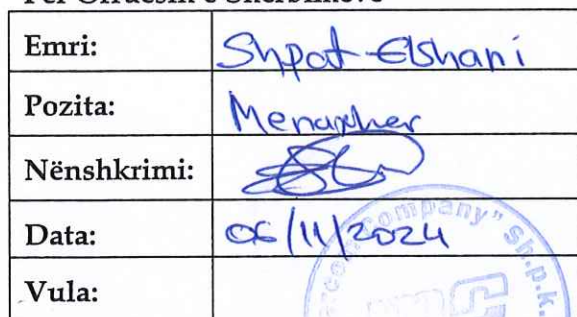 Për Ofruesin e Shërbimeve
Emri: Shpat Elshani
Pozita: Menaxher
Nënshkrimi:
Data: 06/11/2024
Vula:
company" Sh.p.k.